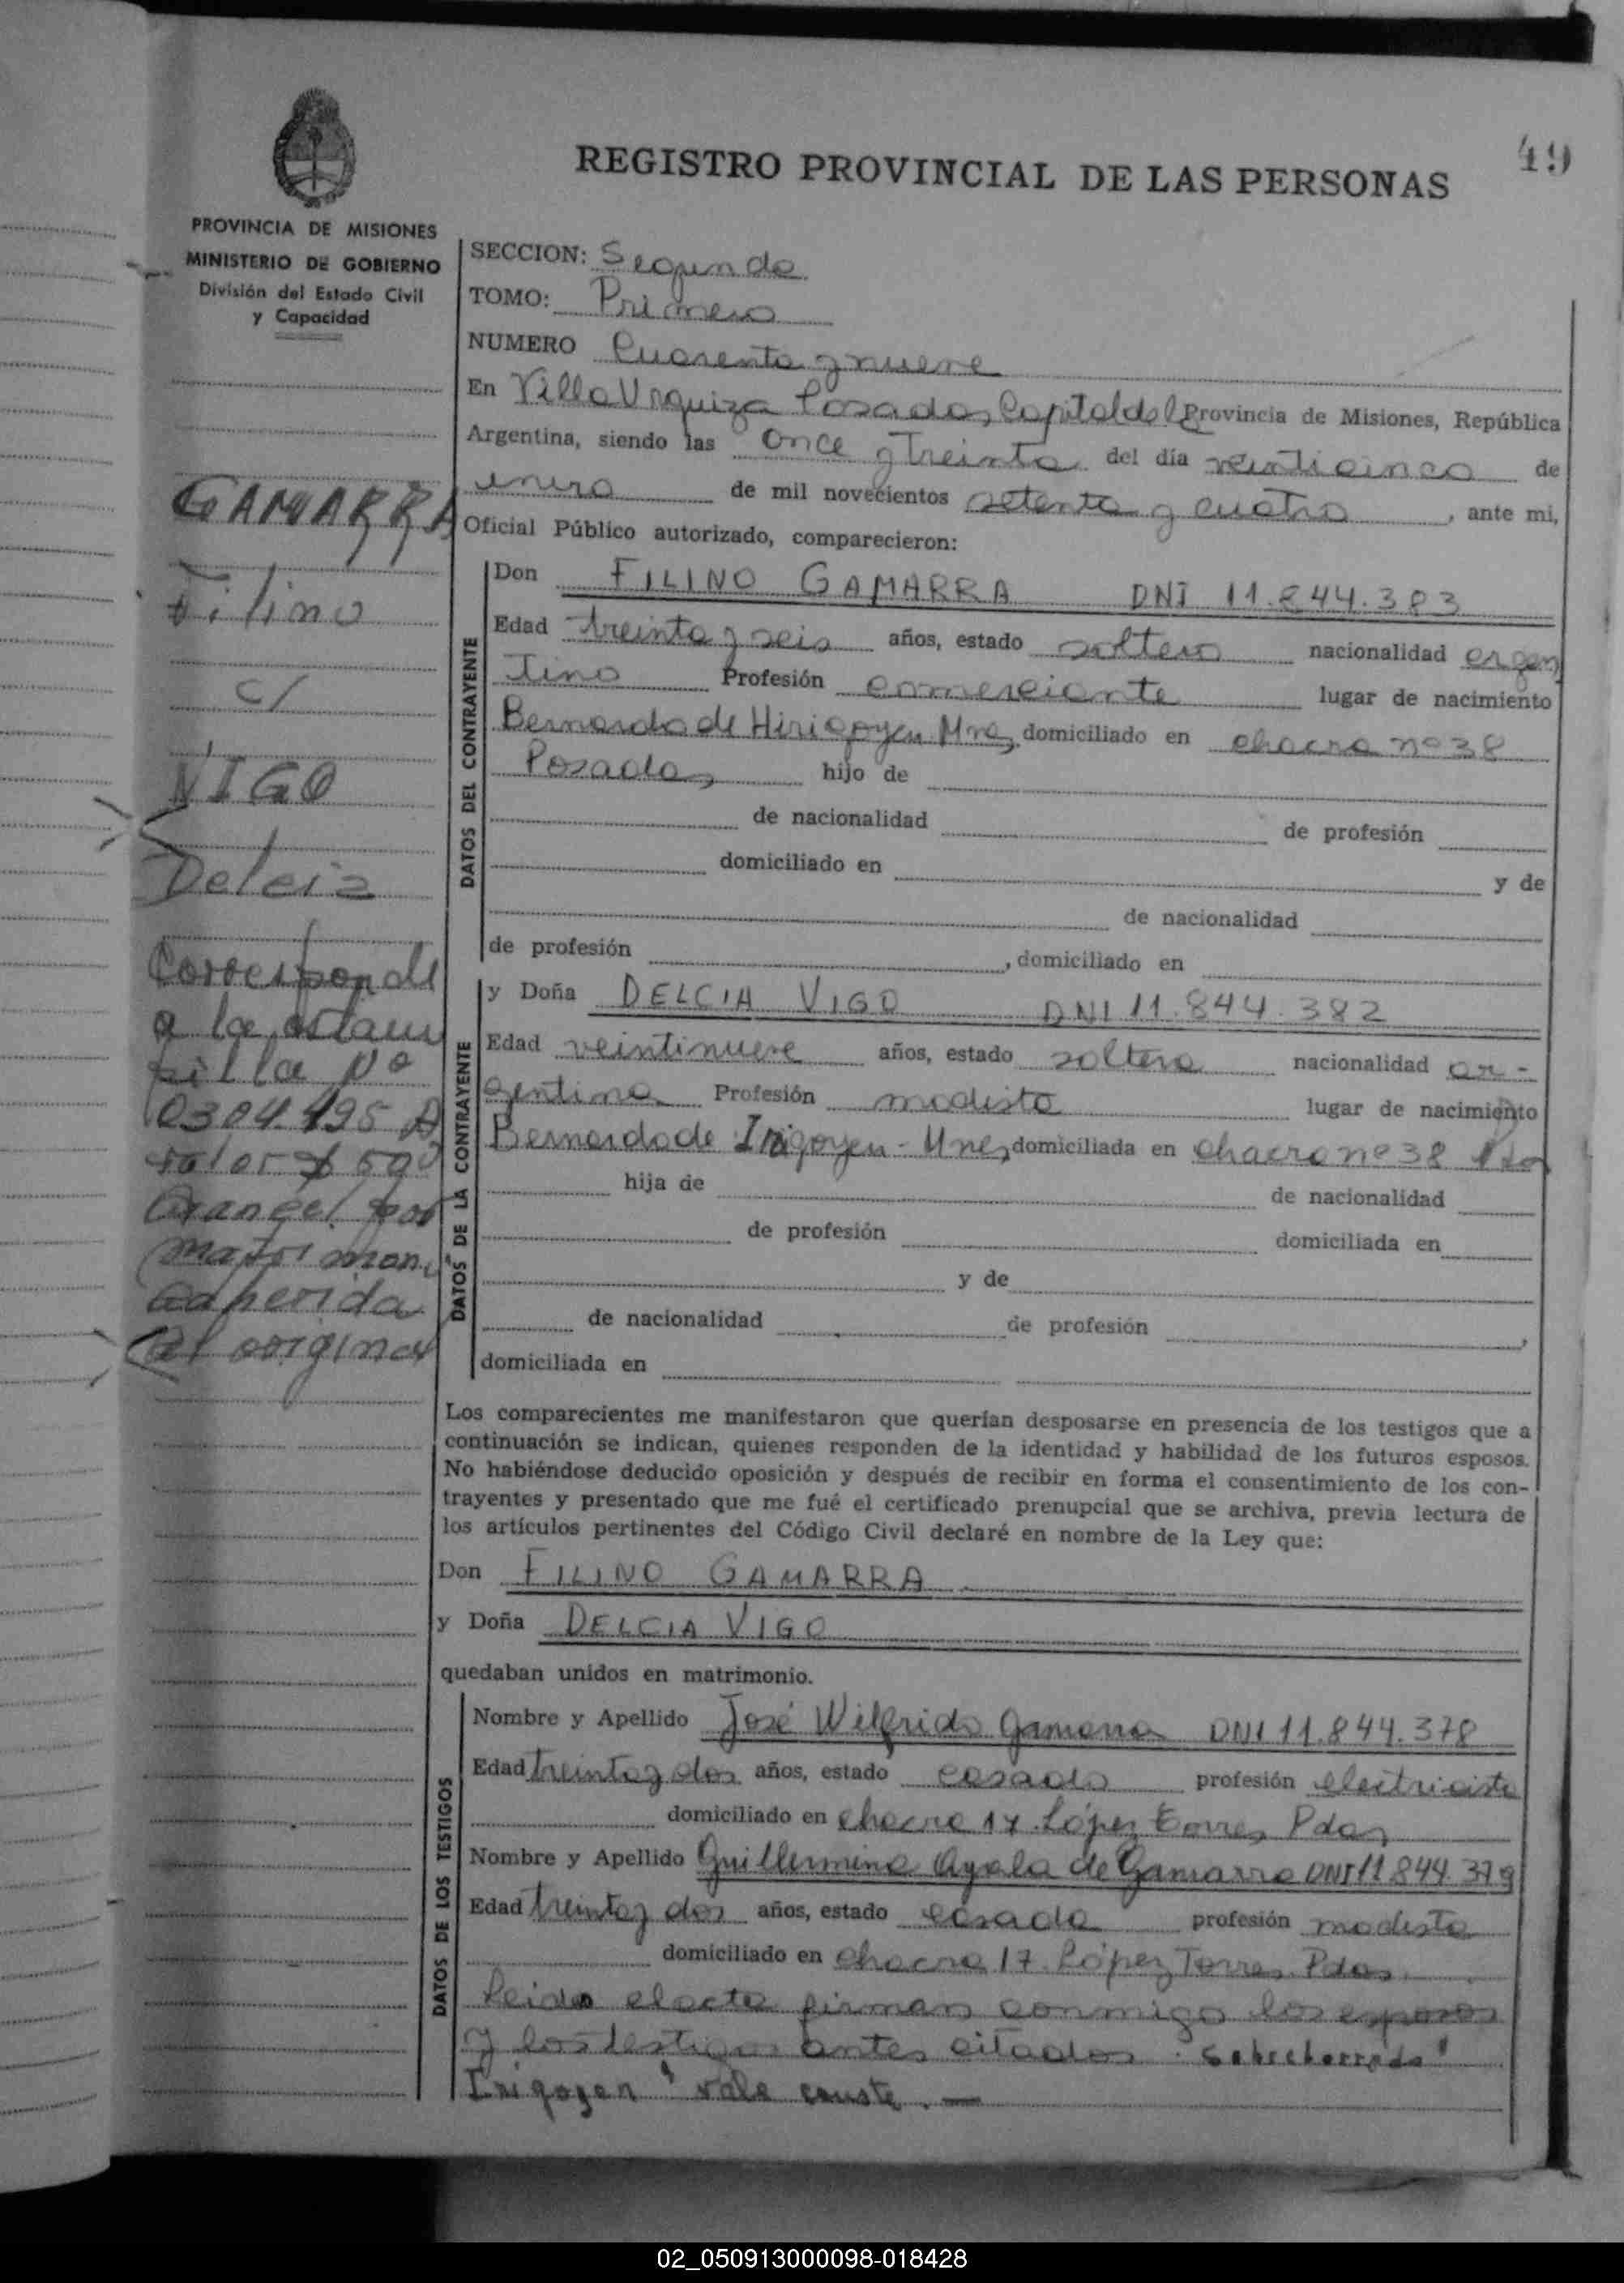 49
REGISTRO PROVINCIAL DE LAS PERSONAS
PROVINCIA DE MISIONES
MINISTERIO DE GOBIERNO
División del Estado Civil
y Capacidad
GAMARRA
Filino
c/
VIGO
Delcia
Corresponde
a la estam
pilla Nº
0304.495 A
valor $ 50
Arancel por
matrimoni
adherida
al original
SECCION: Segunda
TOMO: Primero
NUMERO Cuarenta y nueve
En Villa Urquiza Posadas, Capital del Provincia de Misiones, República
Argentina, siendo las once y treinta del día veinticinco de
enero de mil novecientos setenta y cuatro, ante mi,
Oficial Público autorizado, comparecieron:
DATOS DEL CONTRAYENTE
Don FILINO GAMARRA DNI 11.844.383
Edad treinta y seis años, estado soltero nacionalidad argen
tino Profesión comerciante lugar de nacimiento
Bernardo de Hirigoyen Mnes, domiciliado en chacra nº 38
Posadas, hijo de
de nacionalidad de profesión
domiciliado en y de
de nacionalidad
de profesión , domiciliado en
DATOS DE LA CONTRAYENTE
y Doña DELCIA VIGO DNI 11.844.382
Edad veintinueve años, estado soltera nacionalidad ar-
gentina Profesión modista lugar de nacimiento
Bernardo de Irigoyen - Mnes, domiciliada en chacra nº 38 Pdas
hija de de nacionalidad
de profesión domiciliada en
y de
de nacionalidad de profesión ,
domiciliada en
Los comparecientes me manifestaron que querían desposarse en presencia de los testigos que a
continuación se indican, quienes responden de la identidad y habilidad de los futuros esposos.
No habiéndose deducido oposición y después de recibir en forma el consentimiento de los con-
trayentes y presentado que me fué el certificado prenupcial que se archiva, previa lectura de
los artículos pertinentes del Código Civil declaré en nombre de la Ley que:
Don FILINO GAMARRA
y Doña DELCIA VIGO
quedaban unidos en matrimonio.
DATOS DE LOS TESTIGOS
Nombre y Apellido José Wilfrido Gamarra DNI 11.844.378
Edad treinta y dos años, estado casado profesión electricista
domiciliado en chacra 17 López Torres, Pdas,
Nombre y Apellido Guillermina Ayala de Gamarra DNI 11.844.379
Edad treinta y dos años, estado casada profesión modista
domiciliado en chacra 17 López Torres, Pdas.
Leida el acta firman conmigo los esposos
y los testigos antes citados. Sobreborrado "
Irigoyen " vale conste. —
02_050913000098-018428